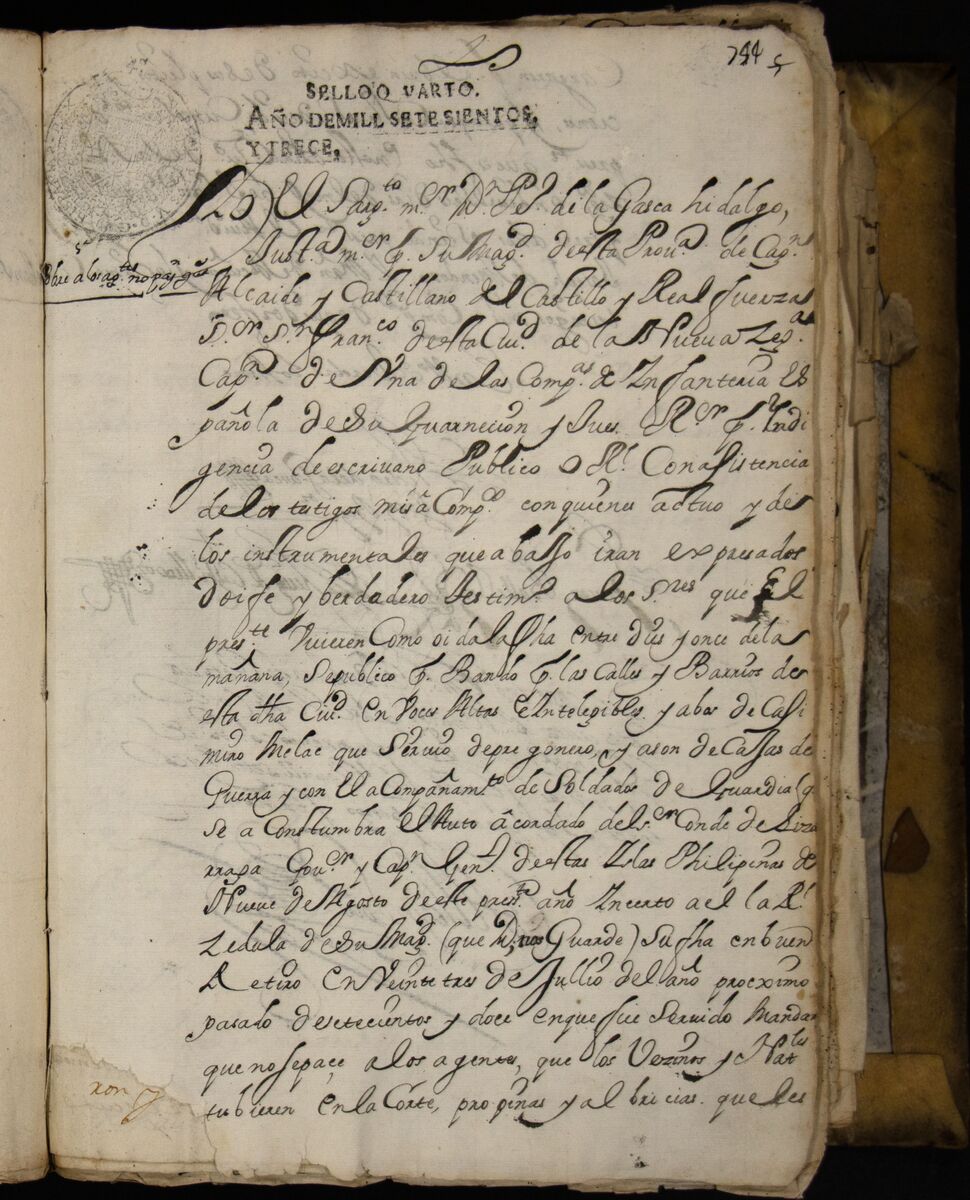 744 5
SELLO QVARTO.
AÑO DE MILL SETESIENTOS,
Y TRECE,
Yo El Sarg.to m.or D.n Pe de la Gasca hidalgo,
Just.a m.or p. Su Mag.d de esta Prov.a de Cag.n
Sobre a los ag.tes no
Alcaide y Castillano del Castillo y Real fuerza
S.or S.n Fran.co de esta Ciu.d de la Nueva Seg.a
Cap.n de Vna de las Comp.as de Infanteria Es
pañola de su Guarnecion y Jues R.or p. Indi
gencia de escrivano Publico o Rl. Con asistencia
de los testigos mis a Comp.dos con quienes actuo y de
los instrumentales que a basso iran expresados
Doi fe y berdadero testim.o a los S.res que El
pres.te Vieren Como oi dia la fha entre dies y once de la
mañana, Se publico p. Bando p. las Calles y Barrios de
esta dha Ciu.d en Voces Altas e Intelegibles y a bos de Casi
miro Melac que Serviio de pregonero, y a son de Caxas de
Guerra y con El a Compañam.to de Soldados de Guardia q
Se a Constumbra el Auto acordado del S.or Conde de Liza
rraga Gov.or y Cap.n Gen.l de estas Islas Philipinas de
Nueve de Agosto de este pres.te año Incerto a el la Rl.
Zedula de Su Mag.d (que D.s nos Guarde) Su fha en buen
Retiro en Veinte tres de Jullio del año procximo
pasado de setecientos y doce en que fue Servido Mandar
que no Se pa a los agentes, que los Vezinos y Nat.les
tubieren en la Corte, propinas y albricias que les
ron